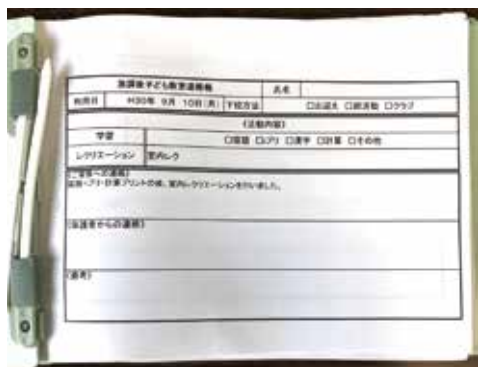 放課後子ども教室連絡帳 氏名
利用日 H30年 9月 10日(月) 下校方法 □お迎え □終活動 □クラブ
(活動内容)
学習 □宿題 □プリ □漢字 □計算 □その他
レクリエーション 室内レク
(ご家庭への連絡)
宿題・プリ・計算プリントの後、室内レクリエーションを行いました。
(保護者からの連絡)
(備考)